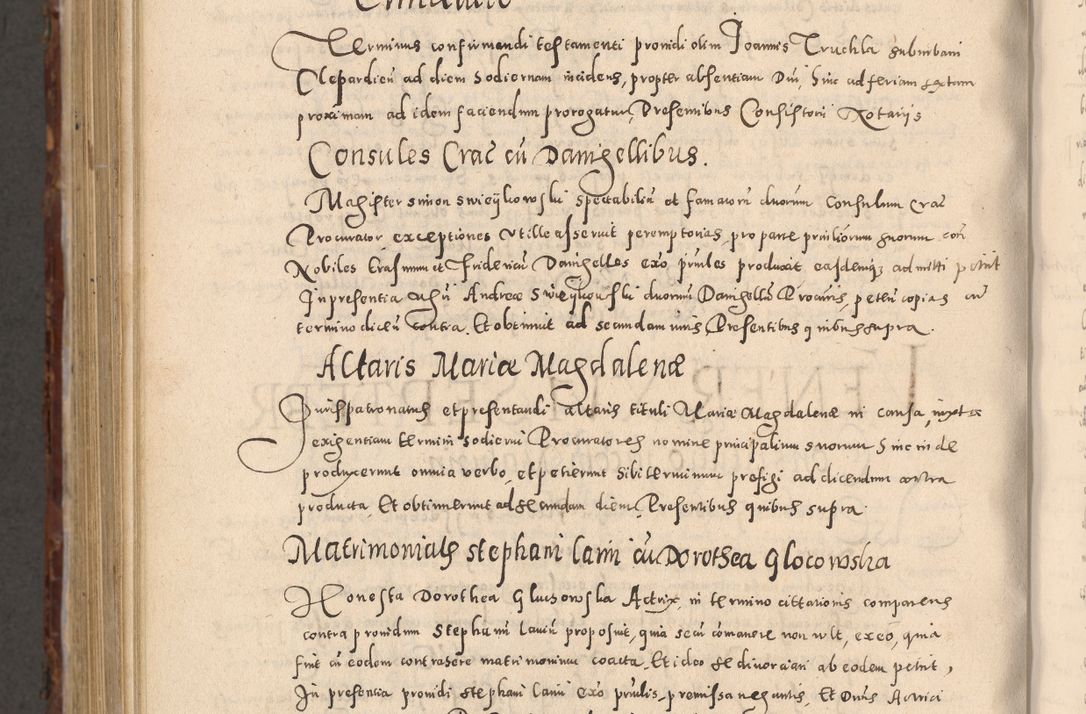 Terminus confirmandi testamenti providi olim Joannis Truchla suburbani
Clepardien ad diem hodiernam incidens, propter absentiam Dni, hinc ad feriam sextam
proximam ad idem faciendum prorogatur, Presentibus Consistorii Notariis
Consules Crac cũ Danigellibus.
Magister Simon Swieijkowski spectabiliũ et famatorũ duorum Consulum Crac
Procurator exceptiones utille asseruit peremptorias, pro parte principaliorum suorum con
Nobiles Erasmum et Fridericũ Danigelles exo priules produxit easdemq admitti petiit
In presentia Andreæ Swieijkowski duorum Danigellũ Procuris, petẽn copias cũ
termino dicẽn contra. Et obtinuit ad secundam iuris, Presentibus quibus supra.
Altaris Mariæ Magdalenæ
Jurispatronatus et presentandi altaris tituli Mariæ Magdalenæ in causa, iuxta
exigentiam termini hodierni Procuratores nomine principalium suorum hinc inde
produxerunt omnia verbo, et petierunt sibi terminum prefigi ad dicendum contra
producta. Et obtinuerunt ad secundam diem, Presentibus quibus supra.
Matrimonialis Stephani Lanii cũ Dorothea Glocowska
Honesta Dorothea Gluchowska Actrix, in termino citationis comparens
contra providum Stephanũ Laniũ proposuit, quia secũ comanere non vult, ex eo, quia
fuit cũ eodem contrahere matrimonium coacta. Et ideo se divorciari ab eodem petiit,
In presentia providi Stephani Lanii exo priulis, premissa negantis, Et Dnus Actrici